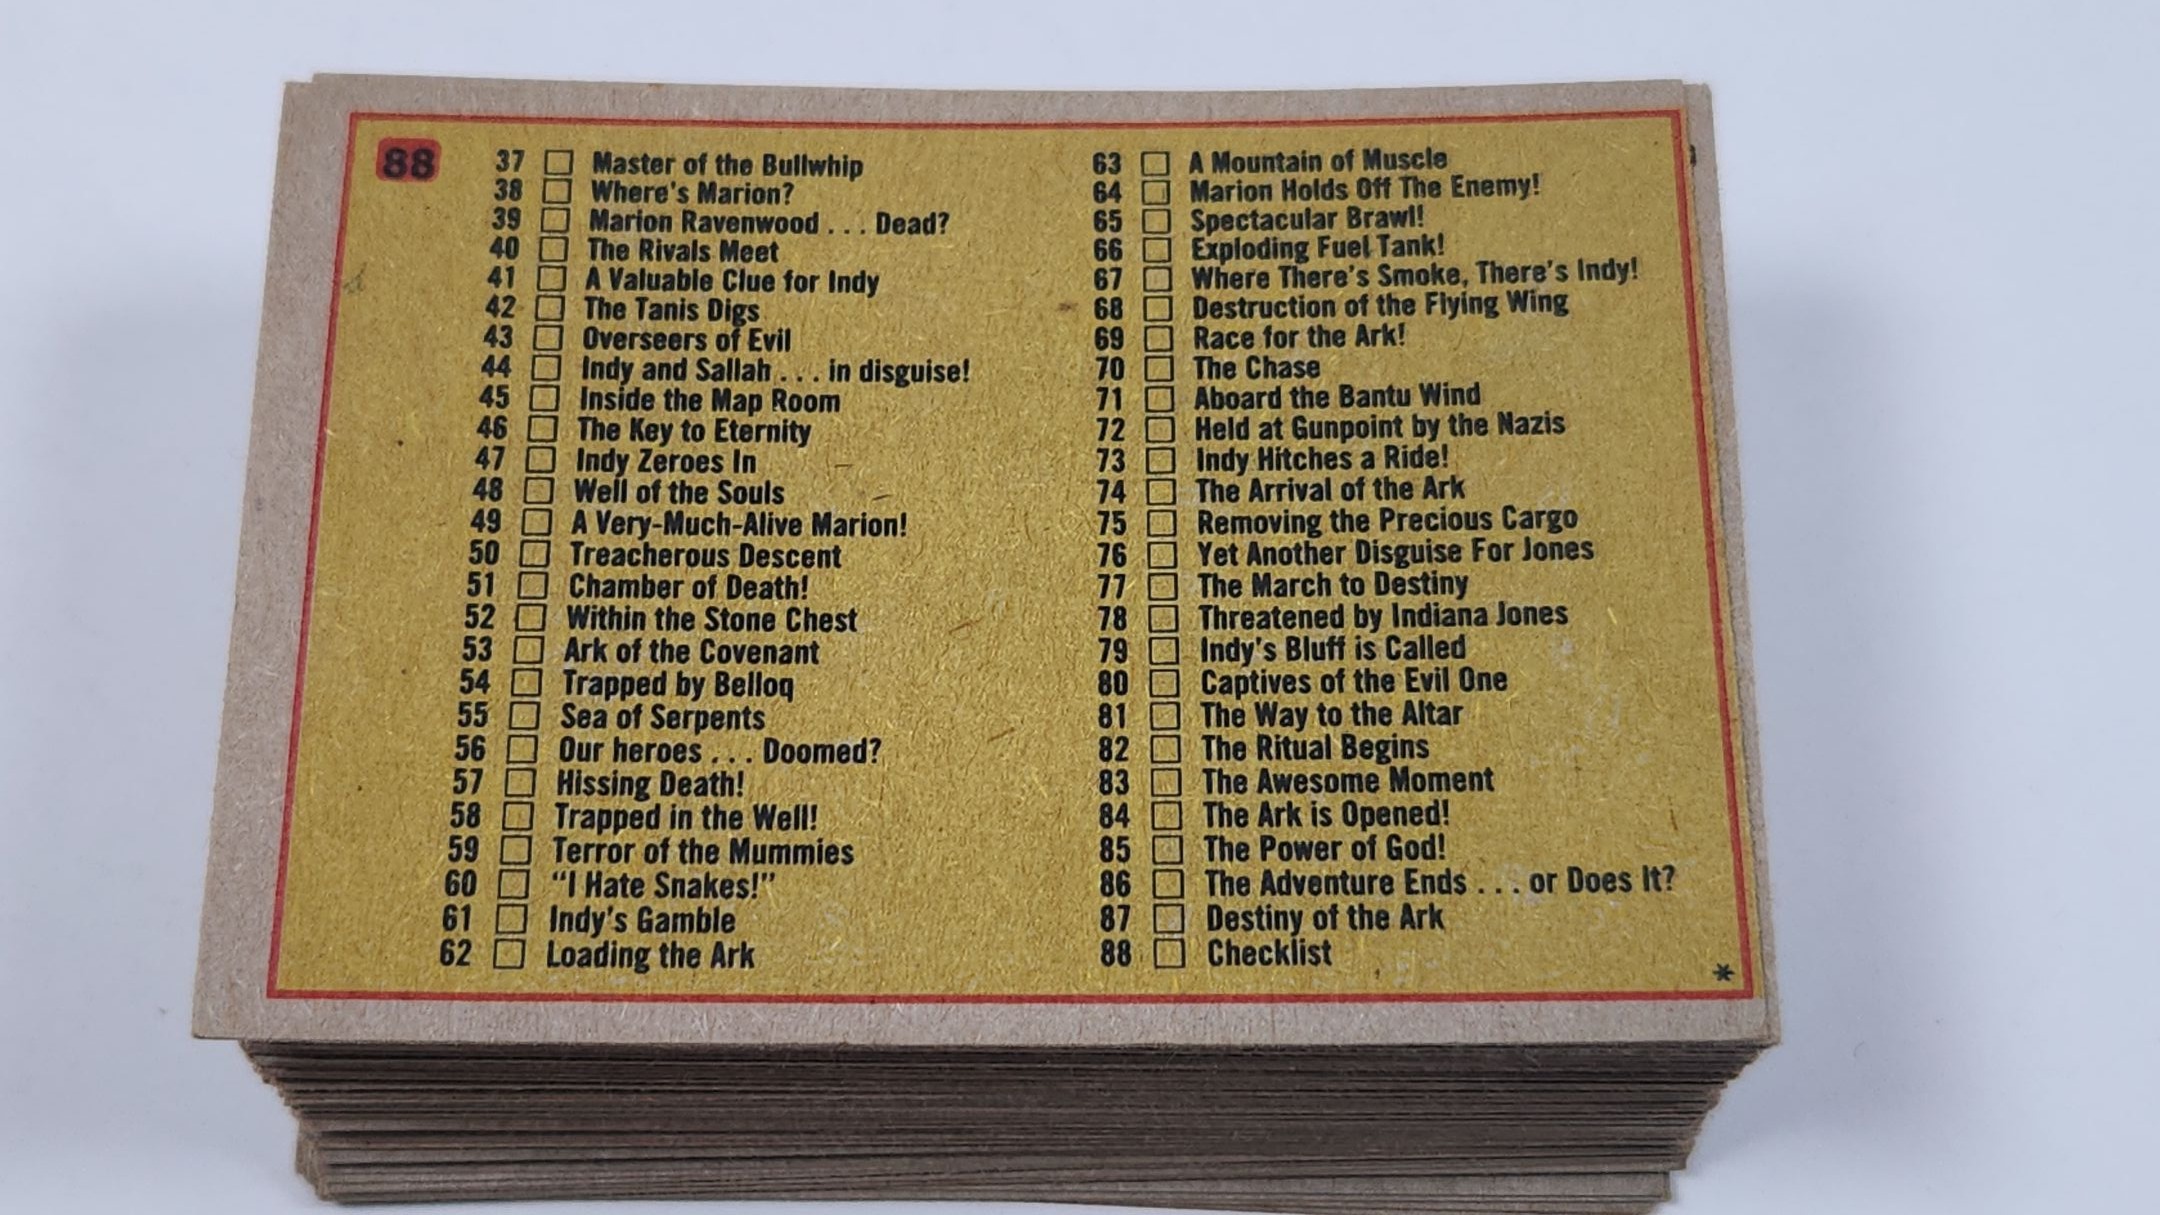 88
37 Master of the Bullwhip
38 Where's Marion?
39 Marion Ravenwood . . . Dead?
40 The Rivals Meet
41 A Valuable Clue for Indy
42 The Tanis Digs
43 Overseers of Evil
44 Indy and Sallah . . . in disguise!
45 Inside the Map Room
46 The Key to Eternity
47 Indy Zeroes In
48 Well of the Souls
49 A Very-Much-Alive Marion!
50 Treacherous Descent
51 Chamber of Death!
52 Within the Stone Chest
53 Ark of the Covenant
54 Trapped by Belloq
55 Sea of Serpents
56 Our heroes . . . Doomed?
57 Hissing Death!
58 Trapped in the Well!
59 Terror of the Mummies
60 “I Hate Snakes!”
61 Indy's Gamble
62 Loading the Ark
63 A Mountain of Muscle
64 Marion Holds Off The Enemy!
65 Spectacular Brawl!
66 Exploding Fuel Tank!
67 Where There's Smoke, There's Indy!
68 Destruction of the Flying Wing
69 Race for the Ark!
70 The Chase
71 Aboard the Bantu Wind
72 Held at Gunpoint by the Nazis
73 Indy Hitches a Ride!
74 The Arrival of the Ark
75 Removing the Precious Cargo
76 Yet Another Disguise For Jones
77 The March to Destiny
78 Threatened by Indiana Jones
79 Indy's Bluff is Called
80 Captives of the Evil One
81 The Way to the Altar
82 The Ritual Begins
83 The Awesome Moment
84 The Ark is Opened!
85 The Power of God!
86 The Adventure Ends . . . or Does It?
87 Destiny of the Ark
88 Checklist
*